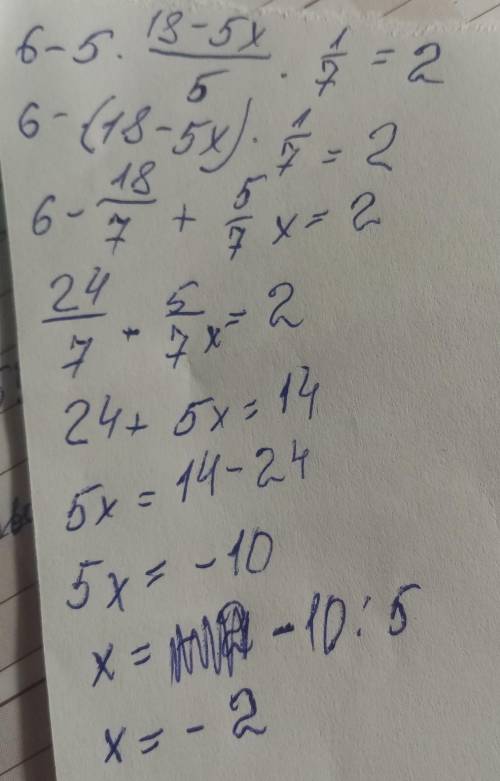 6 - 5 · (18 - 5x)/5 · 1/7 = 2
6 - (18 - 5x) · 1/7 = 2
6 - 18/7 + 5/7 x = 2
24/7 - 5/7 x = 2
24 + 5x = 14
5x = 14 - 24
5x = -10
x = -10 : 5
x = - 2